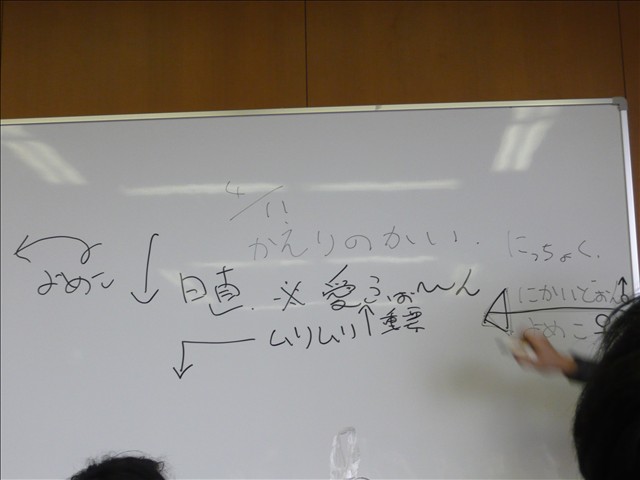 4/11
かえりのかい. にっちょく.
よめこ 日直. ※ 愛ふぉ〜ん
にかいどおん
ムリムリ 重要
よめこ